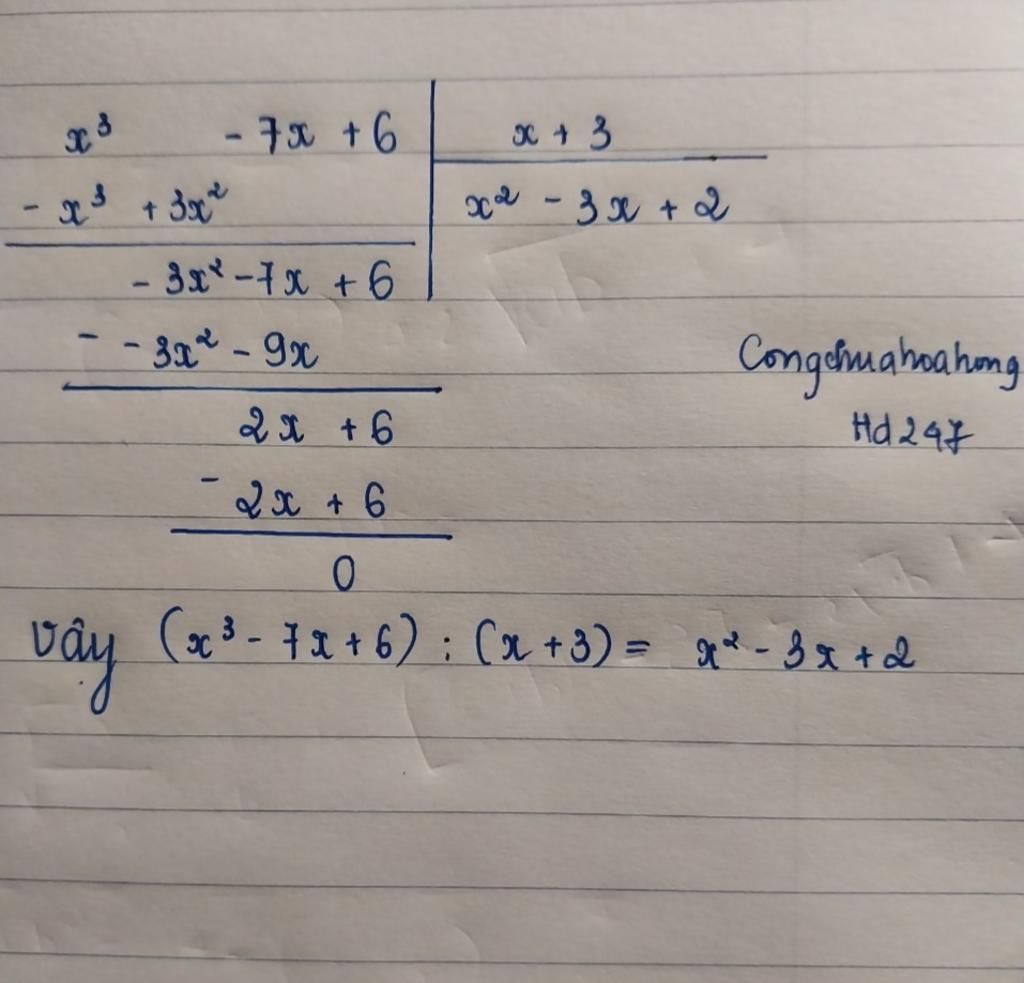 x³ - 7x + 6 | x + 3
- x³ + 3x² | x² - 3x + 2
- 3x² - 7x + 6
- - 3x² - 9x
Congchuahoahong
2x + 6
Hd247
- 2x + 6
0
Vậy (x³ - 7x + 6) : (x + 3) = x² - 3x + 2